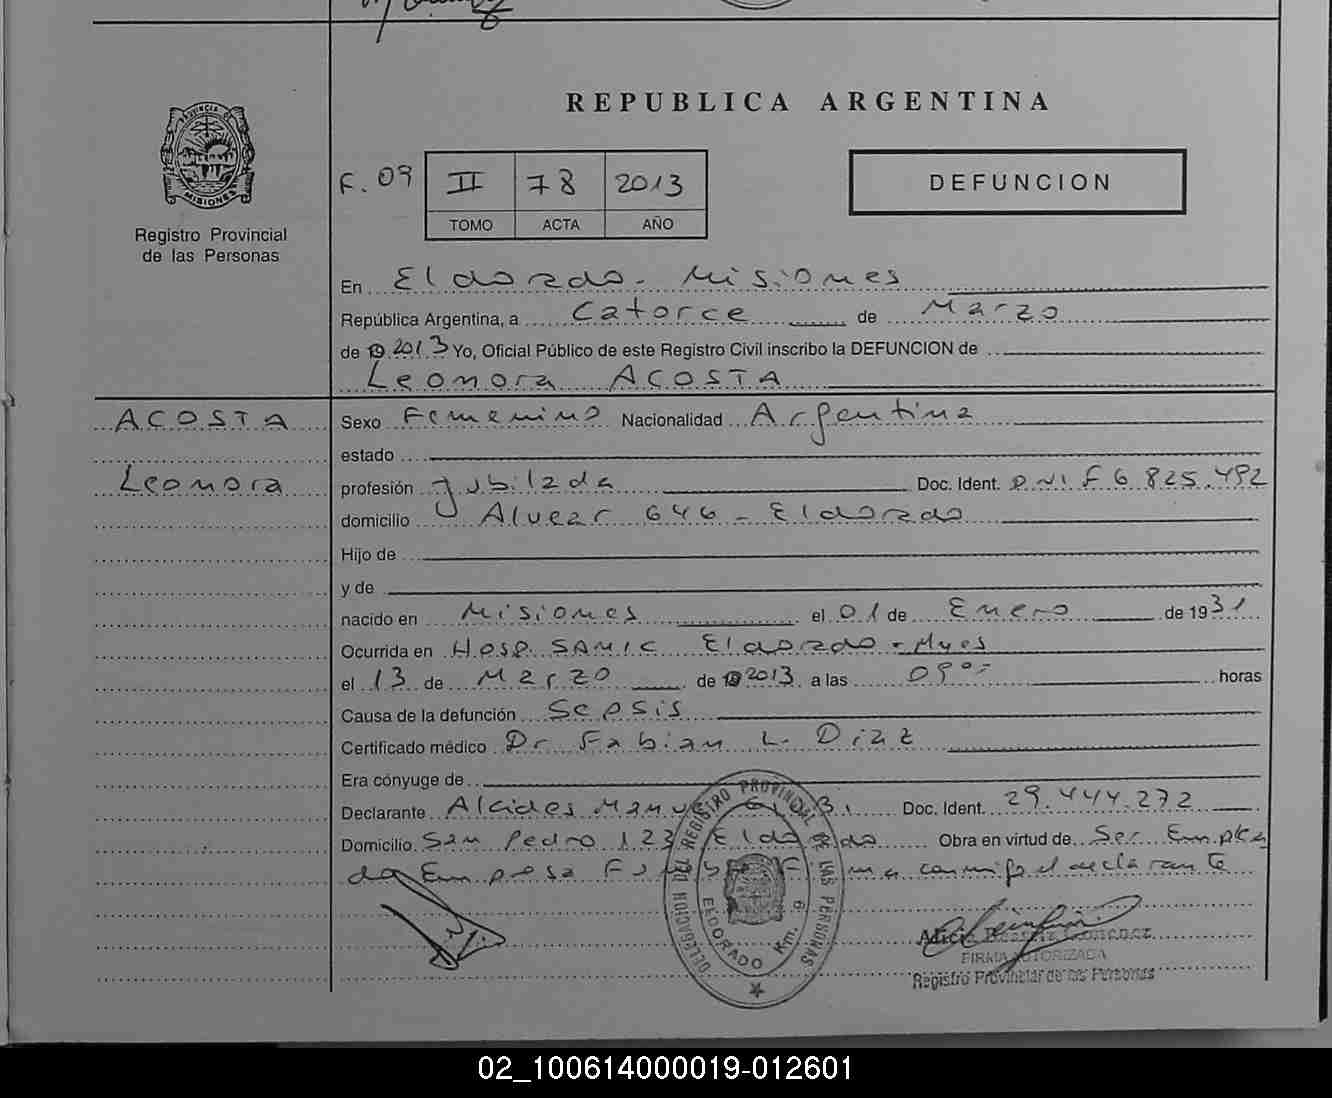 REPUBLICA ARGENTINA
PROVINCIA DE MISIONES
Registro Provincial
de las Personas
F. 09 II 78 2013
TOMO ACTA AÑO
DEFUNCION
En Eldorado - Misiones
República Argentina, a Catorce de Marzo
de 2013 Yo, Oficial Público de este Registro Civil inscribo la DEFUNCION de
Leonora ACOSTA
ACOSTA
Leonora
Sexo Femenino Nacionalidad Argentina
estado
profesión Jubilada Doc. Ident. DNI F 6.825.492
domicilio Alvear 646 - Eldorado
Hijo de
y de
nacido en Misiones el 01 de Enero de 1931
Ocurrida en Hosp. SAMIC Eldorado - Mnes
el 13 de Marzo de 2013 a las 09⁰⁰- horas
Causa de la defunción Sepsis
Certificado médico Dr Fabian L. Diaz
Era cónyuge de
Declarante Alcides Doc. Ident. 29.444.272
Domicilio San Pedro 123 Eldorado Obra en virtud de Ser Emplea
do Empresa conmigo el declarante
DELEGACION DEL REGISTRO PROVINCIAL DE LAS PERSONAS
ELDORADO Km. 9
Alicia
FIRMA AUTORIZADA
Registro Provincial de las Personas
02_100614000019-012601